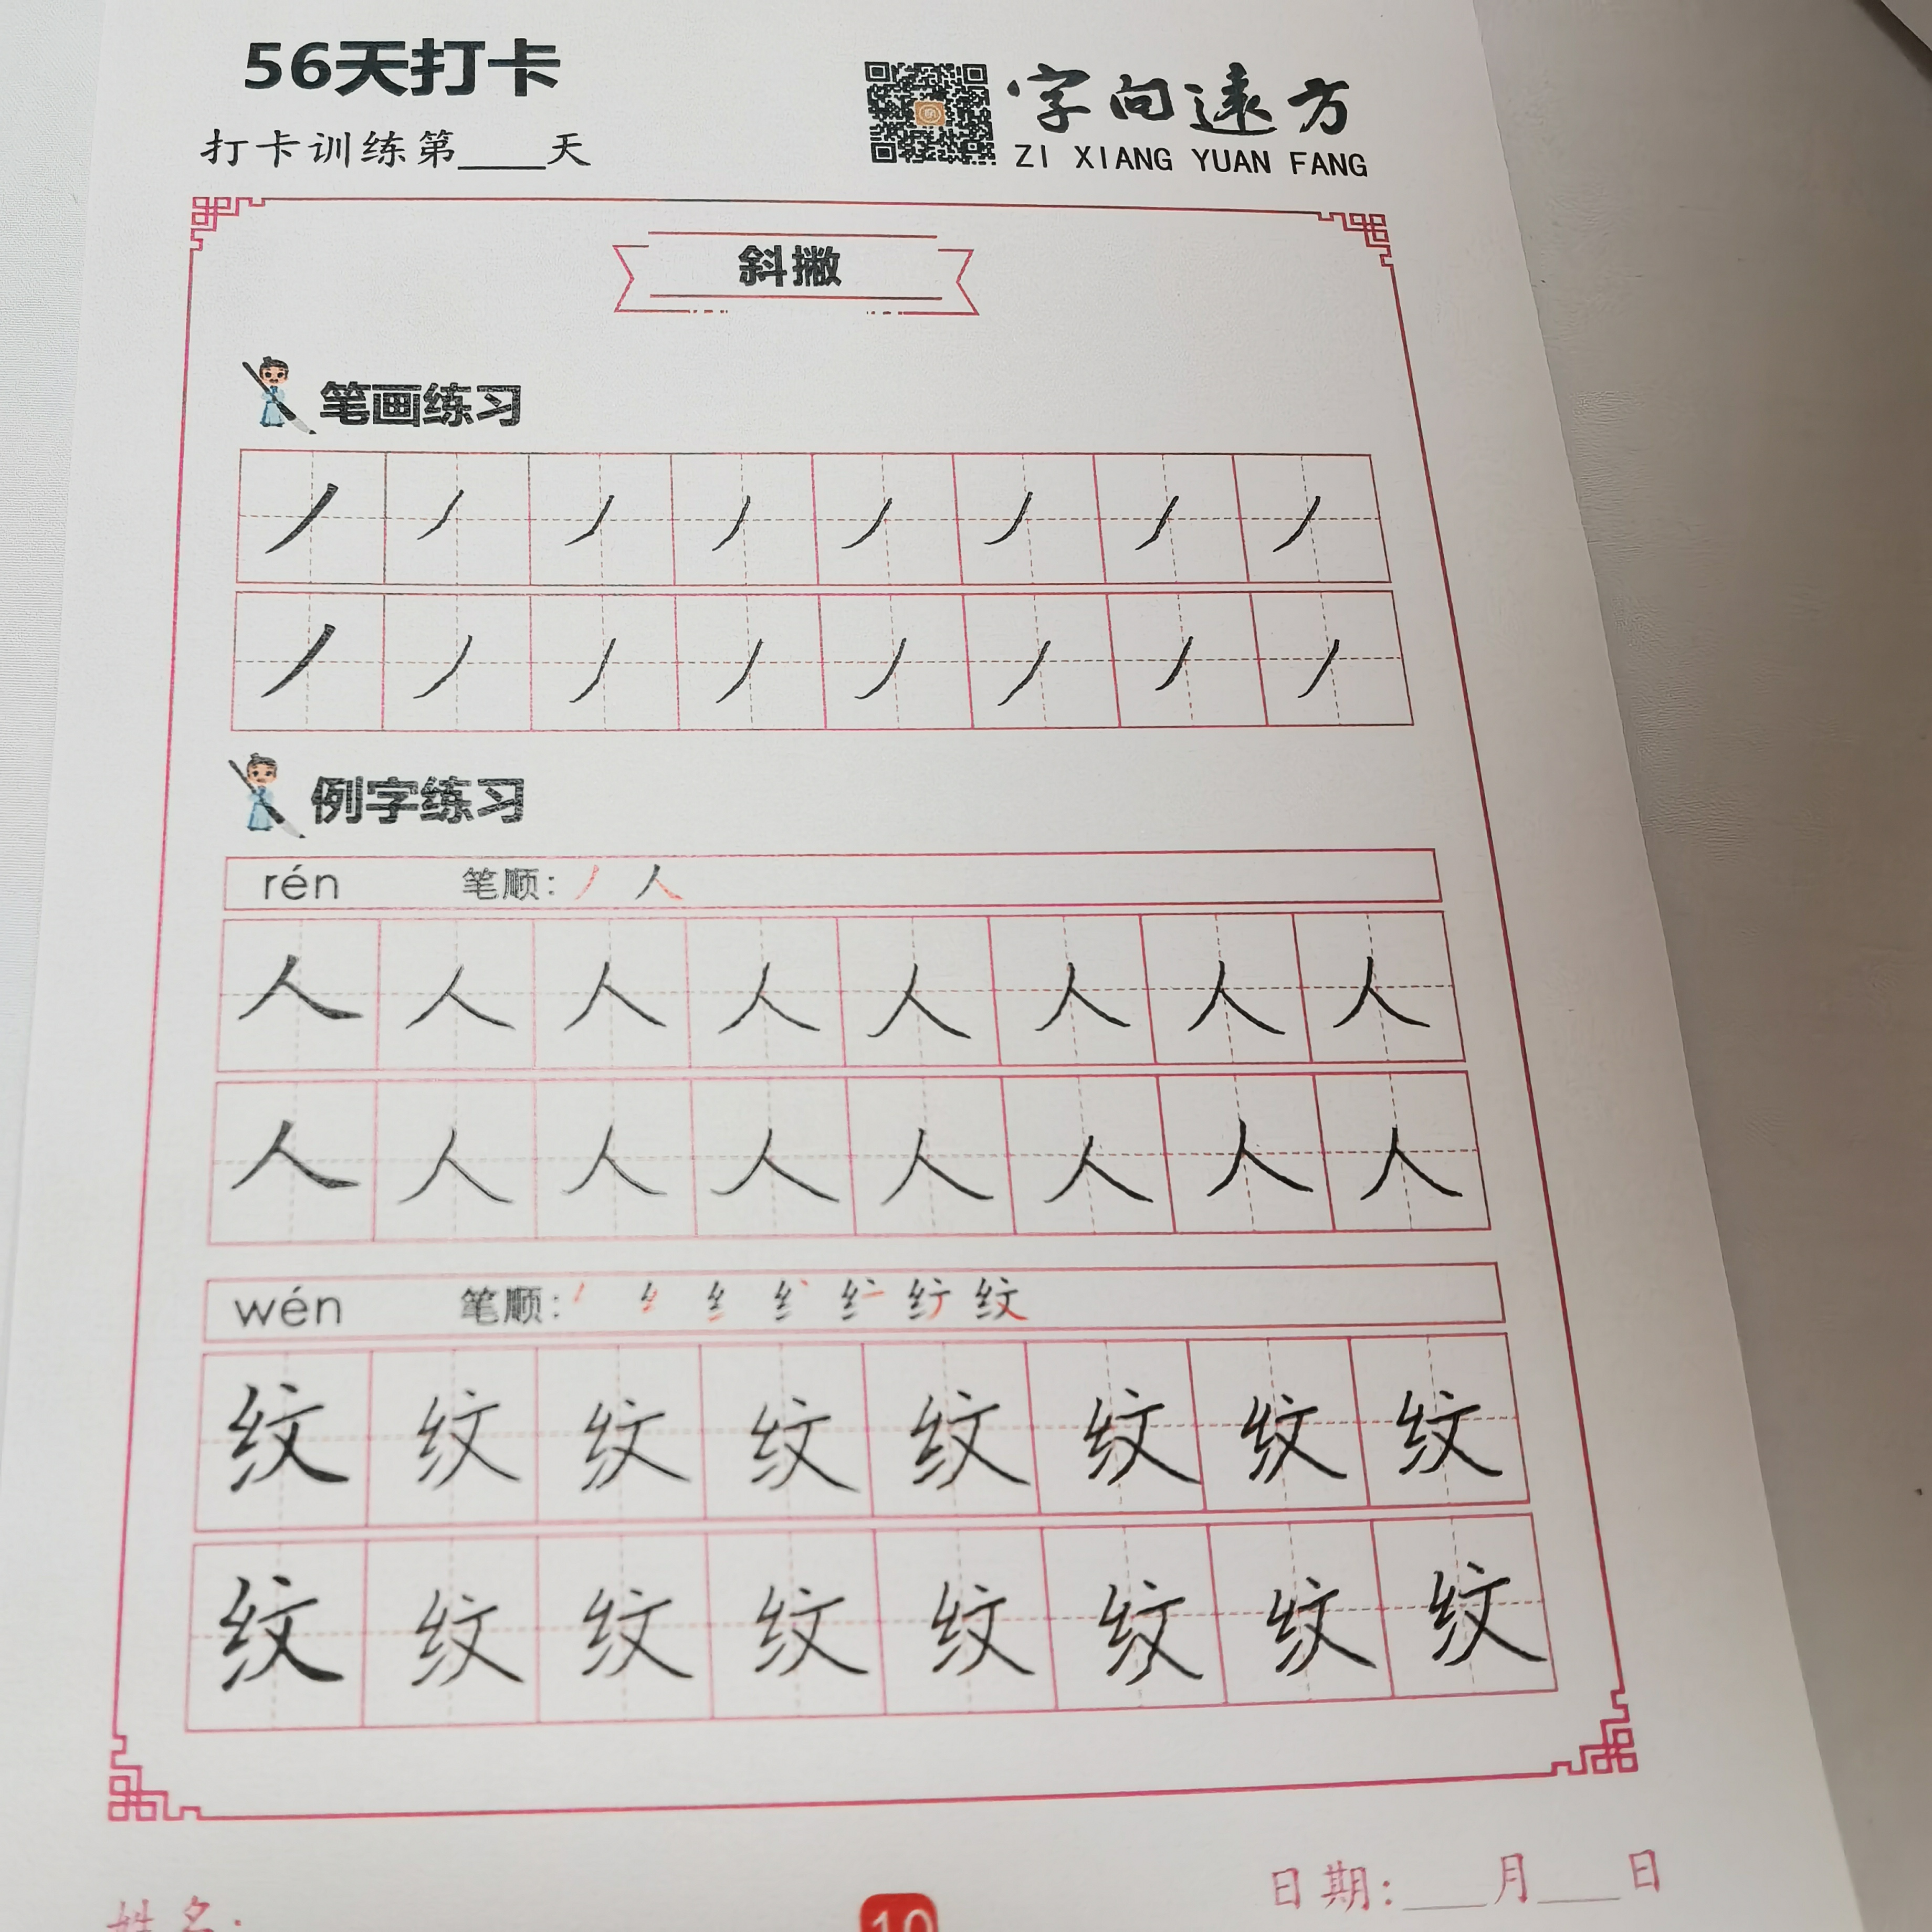 56天打卡
打卡训练第____天
字向远方
ZI XIANG YUAN FANG
斜撇
笔画练习
丿 丿 丿 丿 丿 丿 丿 丿
丿 丿 丿 丿 丿 丿 丿 丿
例字练习
rén 笔顺: 丿 人
人 人 人 人 人 人 人 人
人 人 人 人 人 人 人 人
wén 笔顺: 纹
纹 纹 纹 纹 纹 纹 纹 纹
纹 纹 纹 纹 纹 纹 纹 纹
姓名:
10
日期:___月___日